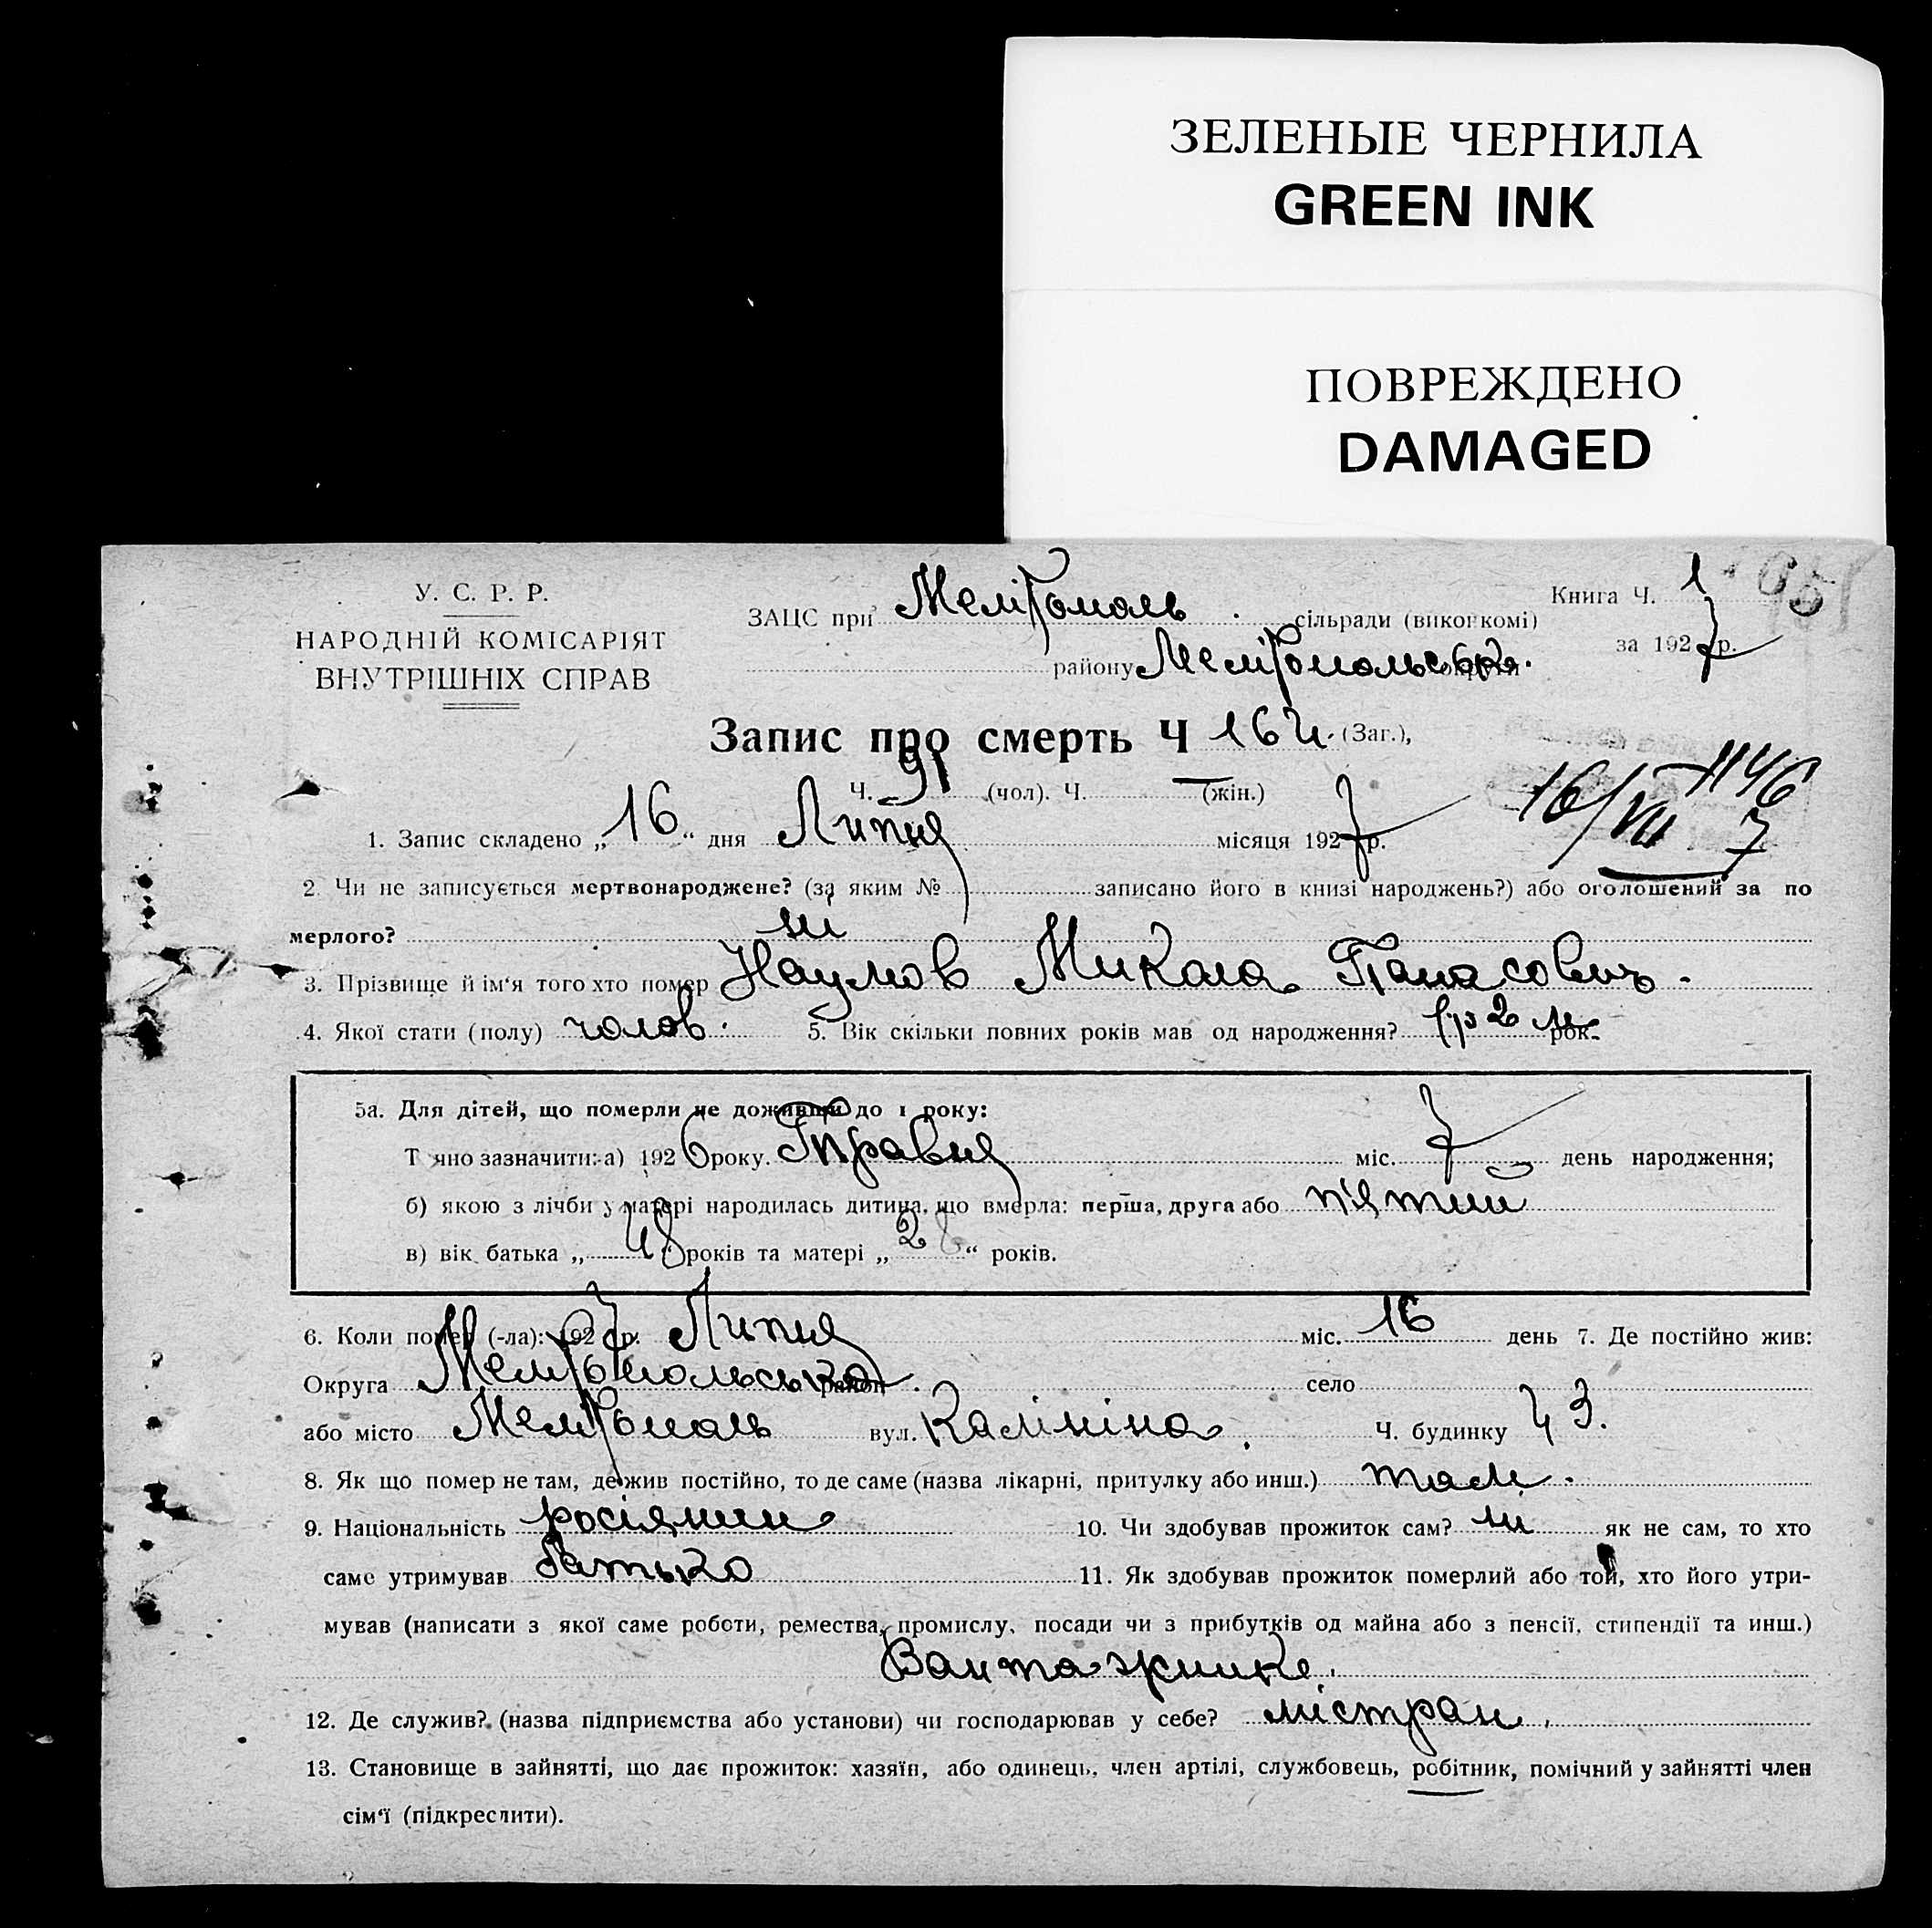 ЗЕЛЕНЫЕ ЧЕРНИЛА
GREEN INK
ПОВРЕЖДЕНО
DAMAGED
У. С. Р. Р.
НАРОДНІЙ КОМІСАРІЯТ
ВНУТРІШНІХ СПРАВ
ЗАЦС при Мелітополь сільради (виконкомі)
Книга Ч. 1
району Мелітопольська округи
за 1927 р.
Запис про смерть Ч 164 (Заг.),
Ч. 91 (чол). Ч. — (жін.)
1146
16/VII 7
1. Запис складено „16“ дня Липня місяця 1927 р.
2. Чи не записується мертвонароджене? (за яким № записано його в книзі народжень?) або оголошений за по
мерлого? ні
3. Прізвище й ім'я того хто помер Наумов Микола Панасович.
4. Якої стати (полу) чолов. 5. Вік скільки повних років мав од народження? 1 р 2 м рок.
5а. Для дітей, що померли не доживши до 1 року:
Т яно зазначити: а) 1926 року. Травня міс. 7 день народження;
б) якою з лічби у матері народилась дитина, що вмерла: перша, друга або п'ятий
в) вік батька „48“ років та матері „28“ років.
6. Коли помер (-ла): 1927 р. Липня міс. 16 день 7. Де постійно жив:
Округа Мелітопольська район село
або місто Мелітополь вул. Калініна Ч. будинку 43.
8. Як що помер не там, де жив постійно, то де саме (назва лікарні, притулку або инш.) там.
9. Національність росіянин 10. Чи здобував прожиток сам? ні як не сам, то хто
саме утримував батько 11. Як здобував прожиток померлий або той, хто його утри-
мував (написати з якої саме роботи, ремества, промислу, посади чи з прибутків од майна або з пенсії, стипендії та инш.)
Вантажник.
12. Де служив? (назва підприємства або установи) чи господарював у себе? містран.
13. Становище в зайнятті, що дає прожиток: хазяїн, або одинець, член артілі, службовець, робітник, помічний у зайнятті член
сім'ї (підкреслити).